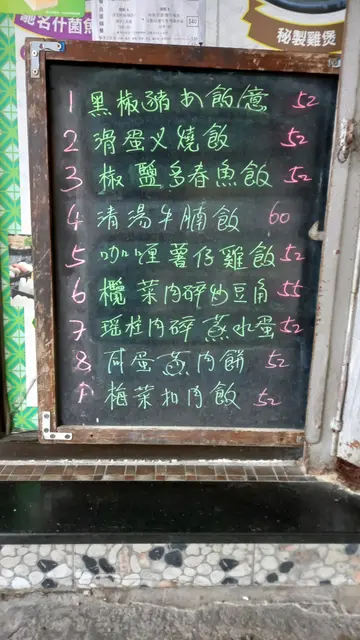 馳名什菌
秘製雞煲
1 黑椒豬扒飯 52
2 滑蛋叉燒飯 52
3 椒鹽多春魚飯 52
4 清湯牛腩飯 60
5 咖喱薯仔雞飯 52
6 欖菜肉碎炒豆角 55
7 瑶柱肉碎蒸水蛋 52
8 咸蛋蒸肉餅 52
9 梅菜扣肉飯 52